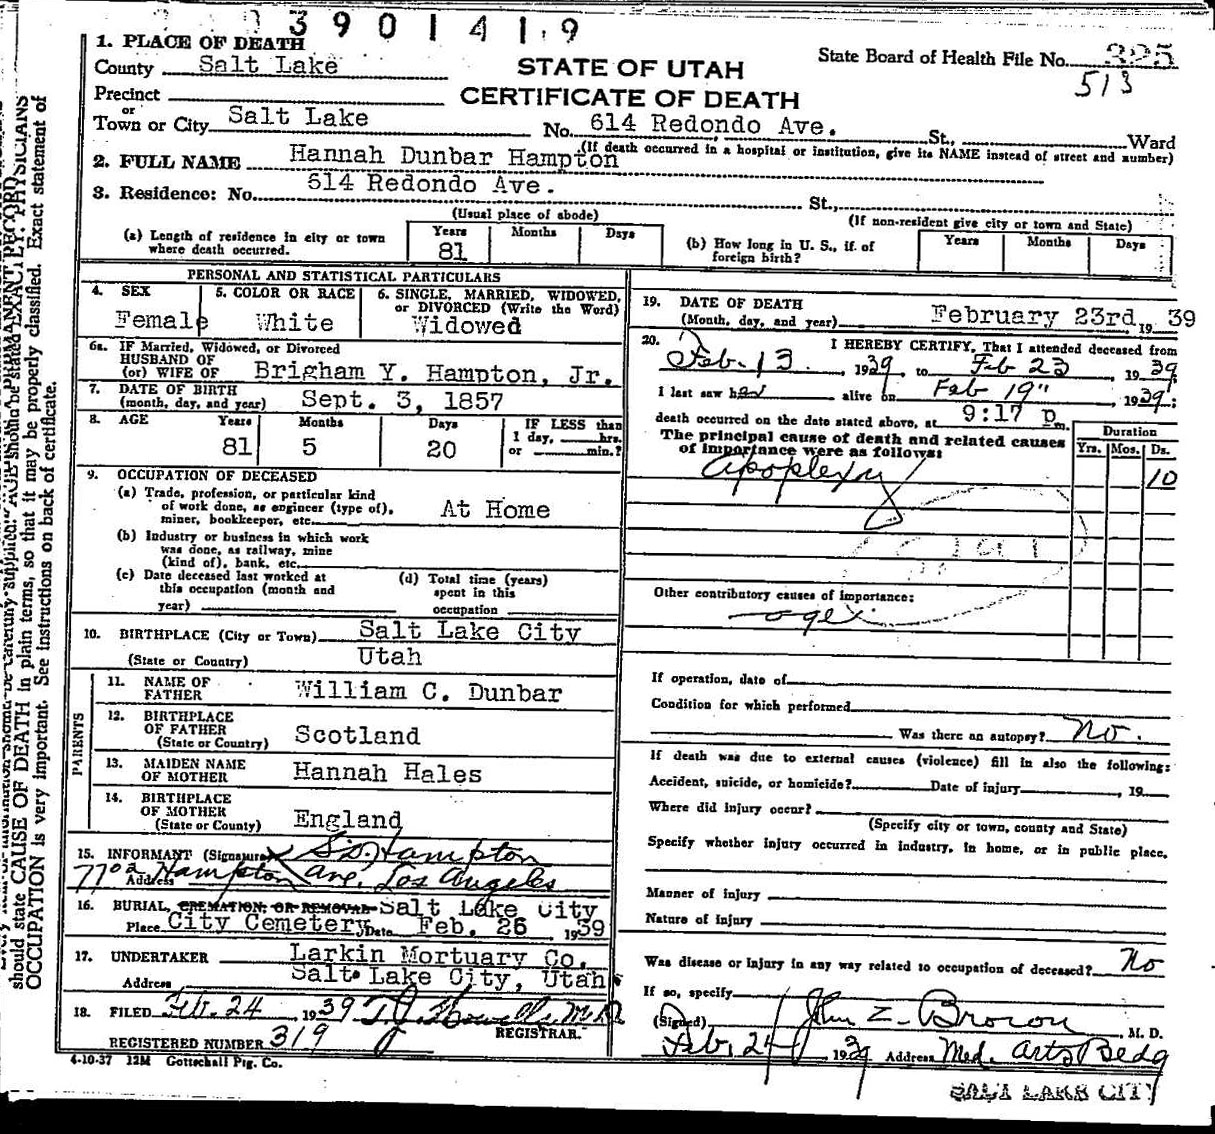 3901419
1. PLACE OF DEATH
County Salt Lake
STATE OF UTAH
CERTIFICATE OF DEATH
State Board of Health File No. 325
513
Precinct
or
Town or City Salt Lake No. 614 Redondo Ave. St., Ward
(If death occurred in a hospital or institution, give its NAME instead of street and number)
2. FULL NAME Hannah Dunbar Hampton
3. Residence: No. 614 Redondo Ave. St.,
(Usual place of abode) (If non-resident give city or town and State)
(a) Length of residence in city or town where death occurred. Years 81 Months Days
(b) How long in U. S., if of foreign birth? Years Months Days
PERSONAL AND STATISTICAL PARTICULARS
4. SEX Female
5. COLOR OR RACE White
6. SINGLE, MARRIED, WIDOWED, or DIVORCED (Write the Word) Widowed
6a. IF Married, Widowed, or Divorced
HUSBAND OF
(or) WIFE OF Brigham Y. Hampton, Jr.
7. DATE OF BIRTH
(month, day, and year) Sept. 3, 1857
8. AGE Years 81 Months 5 Days 20 IF LESS than 1 day, hrs. or min.?
9. OCCUPATION OF DECEASED
(a) Trade, profession, or particular kind
of work done, as engineer (type of), At Home
miner, bookkeeper, etc.
(b) Industry or business in which work
was done, as railway, mine
(kind of), bank, etc.
(c) Date deceased last worked at
this occupation (month and
year)
(d) Total time (years)
spent in this
occupation
10. BIRTHPLACE (City or Town) Salt Lake City
(State or Country) Utah
PARENTS
11. NAME OF
FATHER William C. Dunbar
12. BIRTHPLACE
OF FATHER Scotland
(State or Country)
13. MAIDEN NAME
OF MOTHER Hannah Hales
14. BIRTHPLACE
OF MOTHER
(State or County) England
15. INFORMANT (Signature) S.D. Hampton
Address 7702 Hampton Ave. Los Angeles
16. BURIAL, CREMATION, OR REMOVAL Salt Lake City
Place City Cemetery Date Feb. 26 1939
17. UNDERTAKER Larkin Mortuary Co.
Address Salt Lake City, Utah
18. FILED Feb. 24, 1939 T.J. Howells M.D.
REGISTRAR.
REGISTERED NUMBER 319
4-10-37 12M Gottschall Ptg. Co.
19. DATE OF DEATH
(Month, day, and year) February 23rd, 1939
20. I HEREBY CERTIFY, That I attended deceased from
Feb. 13, 1939, to Feb 23, 1939.
I last saw her alive on Feb 19", 1939;
death occurred on the date stated above, at 9:17 p m.
The principal cause of death and related causes
of importance were as follows:
Duration
Yrs. Mos. Ds.
apoplexy 10
Other contributory causes of importance:
age
If operation, date of
Condition for which performed
Was there an autopsy? No.
If death was due to external causes (violence) fill in also the following:
Accident, suicide, or homicide? Date of injury , 19
Where did injury occur?
(Specify city or town, county and State)
Specify whether injury occurred in industry, in home, or in public place.
Manner of injury
Nature of injury
Was disease or injury in any way related to occupation of deceased? No
If so, specify
(Signed) John Z. Brown, M. D.
Feb. 24 1939 Address Med. Arts Bldg
SALT LAKE CITY
should state CAUSE OF DEATH in plain terms, so that it may be properly classified. Exact statement of
OCCUPATION is very important. See instructions on back of certificate.